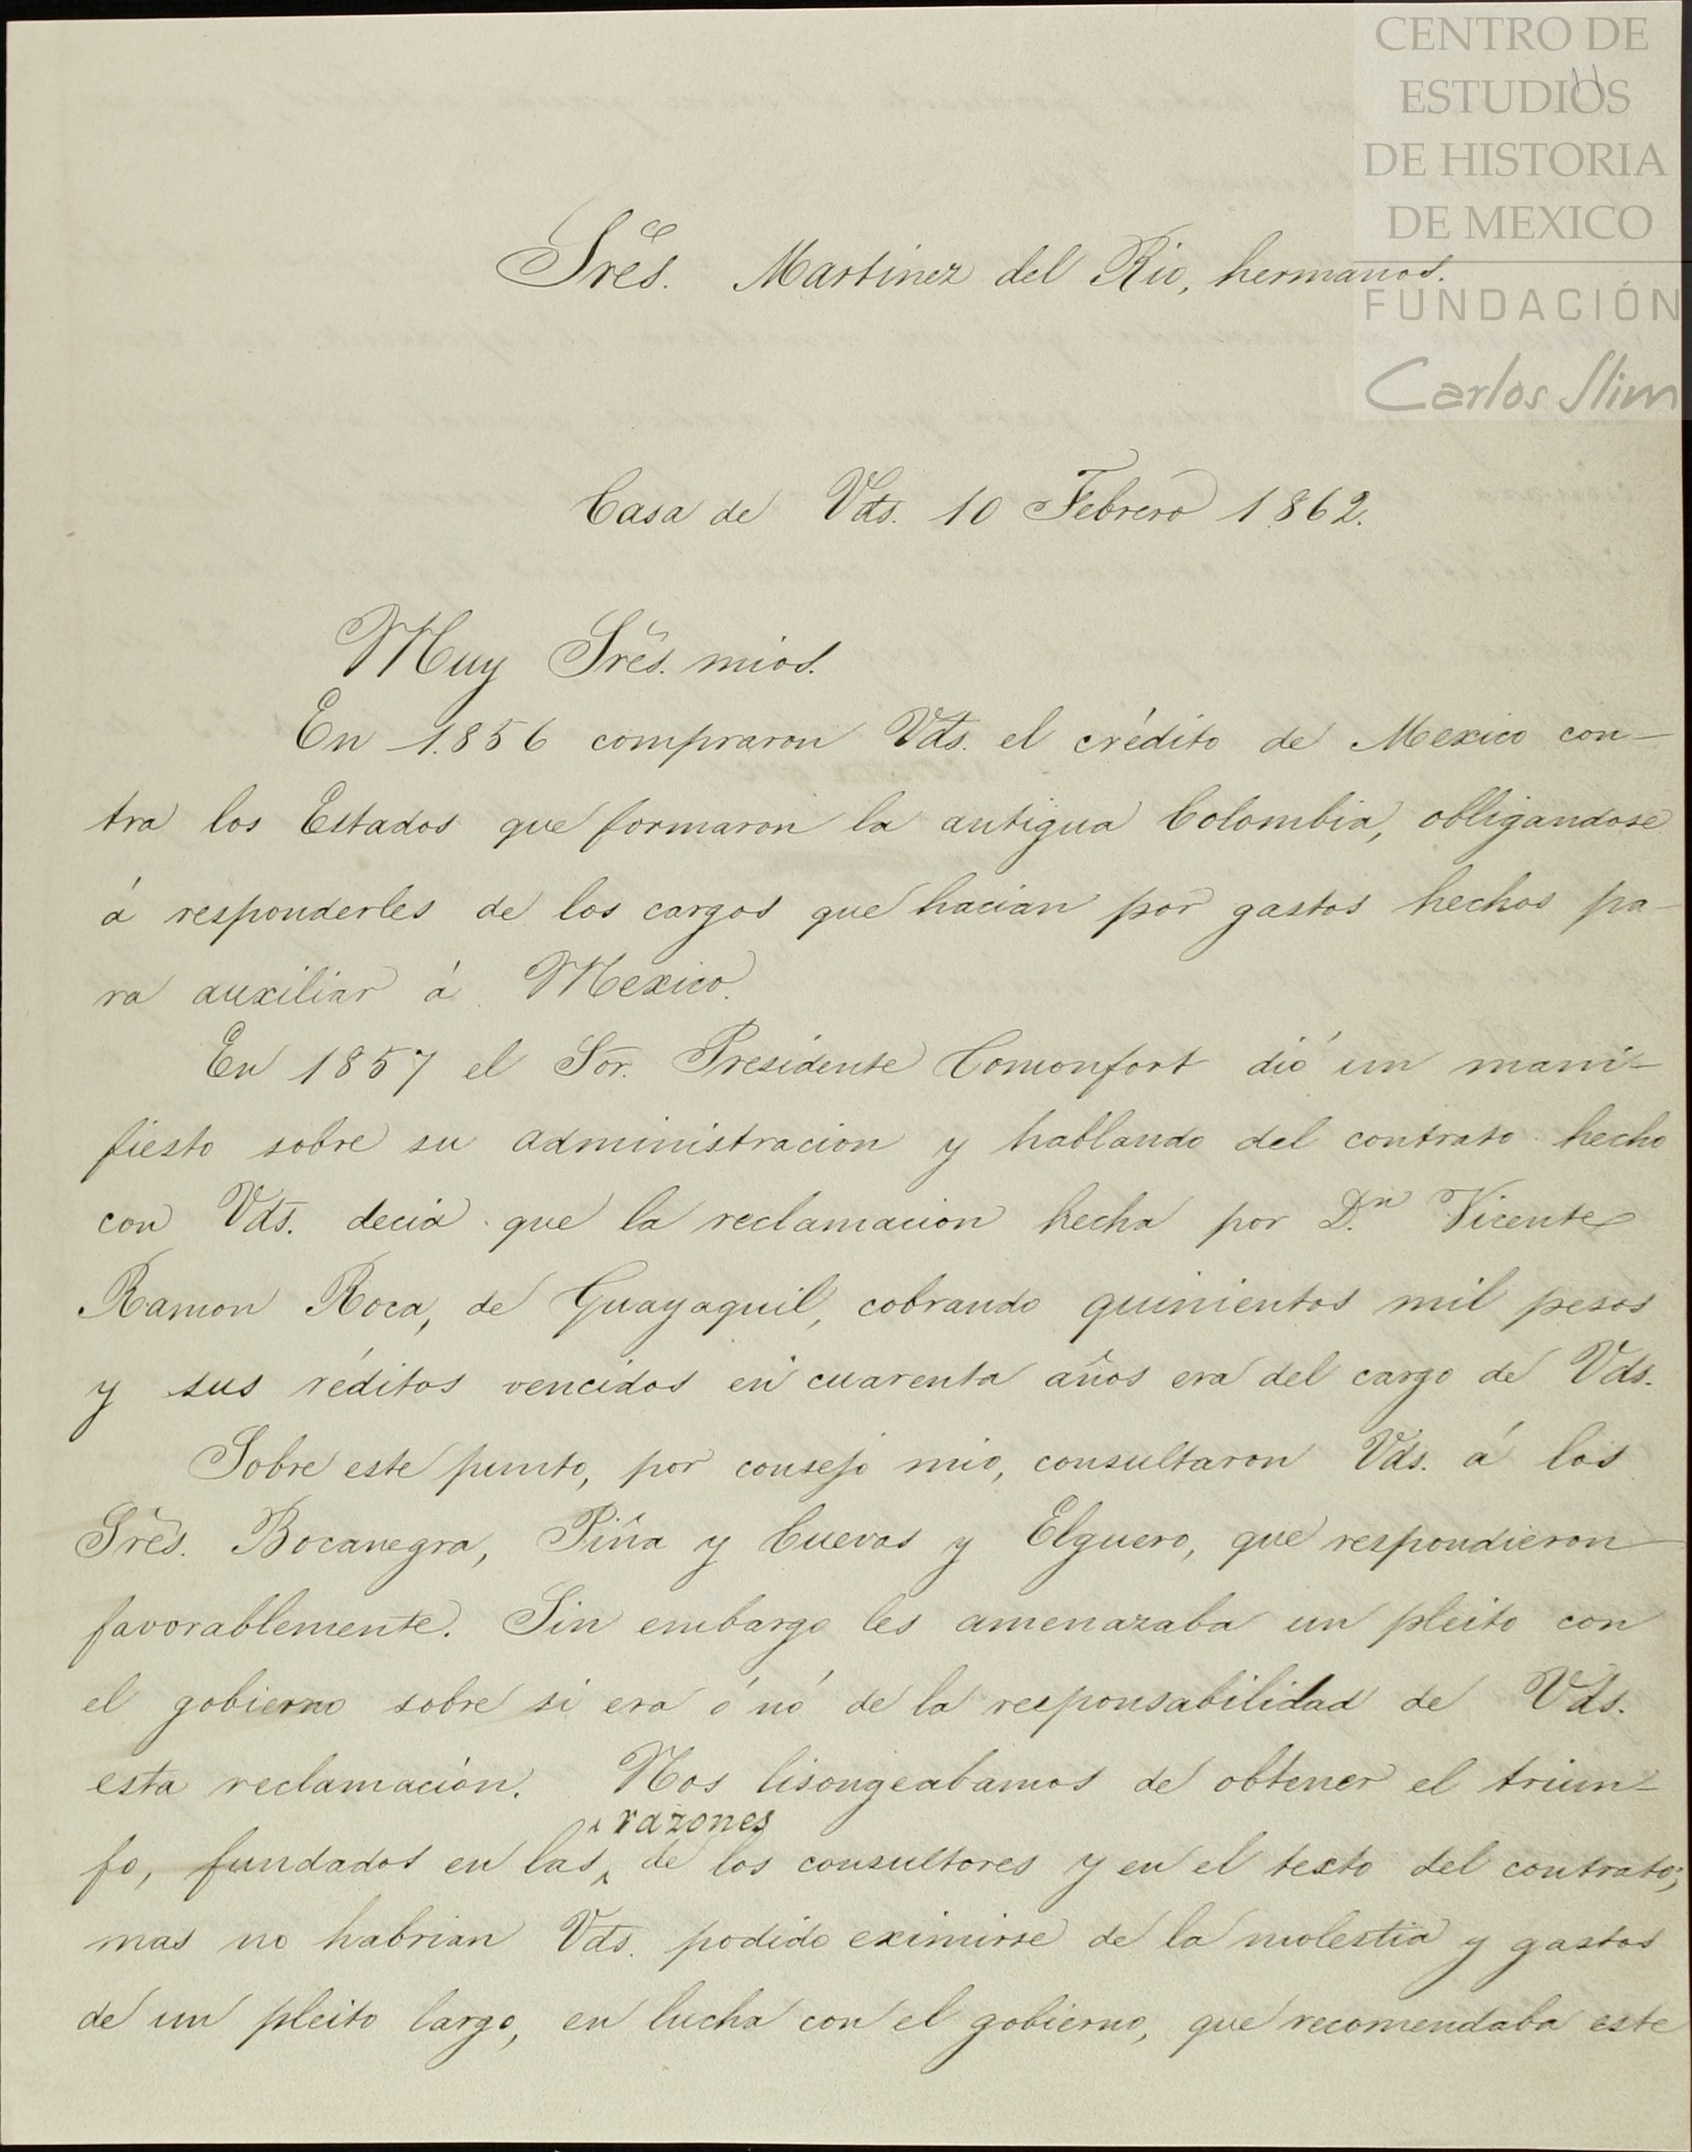 CENTRO DE
ESTUDIOS
DE HISTORIA
DE MEXICO
FUNDACIÓN
Carlos Slim
Sres. Martinez del Rio, hermanos.
Casa de Vds. 10 Febrero 1862.
Muy Sres. mios.
En 1.856 compraron Vds. el crédito de Mexico con-
tra los Estados que formaron la antigua Colombia, obligandose
á responderles de los cargos que hacian por gastos hechos pa-
ra auxiliar á Mexico.
En 1857 el Sor. Presidente Comonfort dió un mani-
fiesto sobre su administracion y hablando del contrato hecho
con Vds. decia que la reclamacion hecha por D.n Vicente
Ramon Roca, de Guayaquil, cobrando quinientos mil pesos
y sus réditos vencidos en cuarenta años era del cargo de Vds.
Sobre este punto, por consejo mio, consultaron Vds. á los
Sres. Bocanegra, Piña y Cuevas y Elguero, que respondieron
favorablemente. Sin embargo les amenazaba un pleito con
el gobierno sobre si era ó nó de la responsabilidad de Vds.
esta reclamación. Nos lisongeabamos de obtener el triun-
razones
fo, fundados en las de los consultores y en el texto del contrato;
mas no habrian Vds. podido eximirse de la molestia y gastos
de un pleito largo, en lucha con el gobierno, que recomendaba este